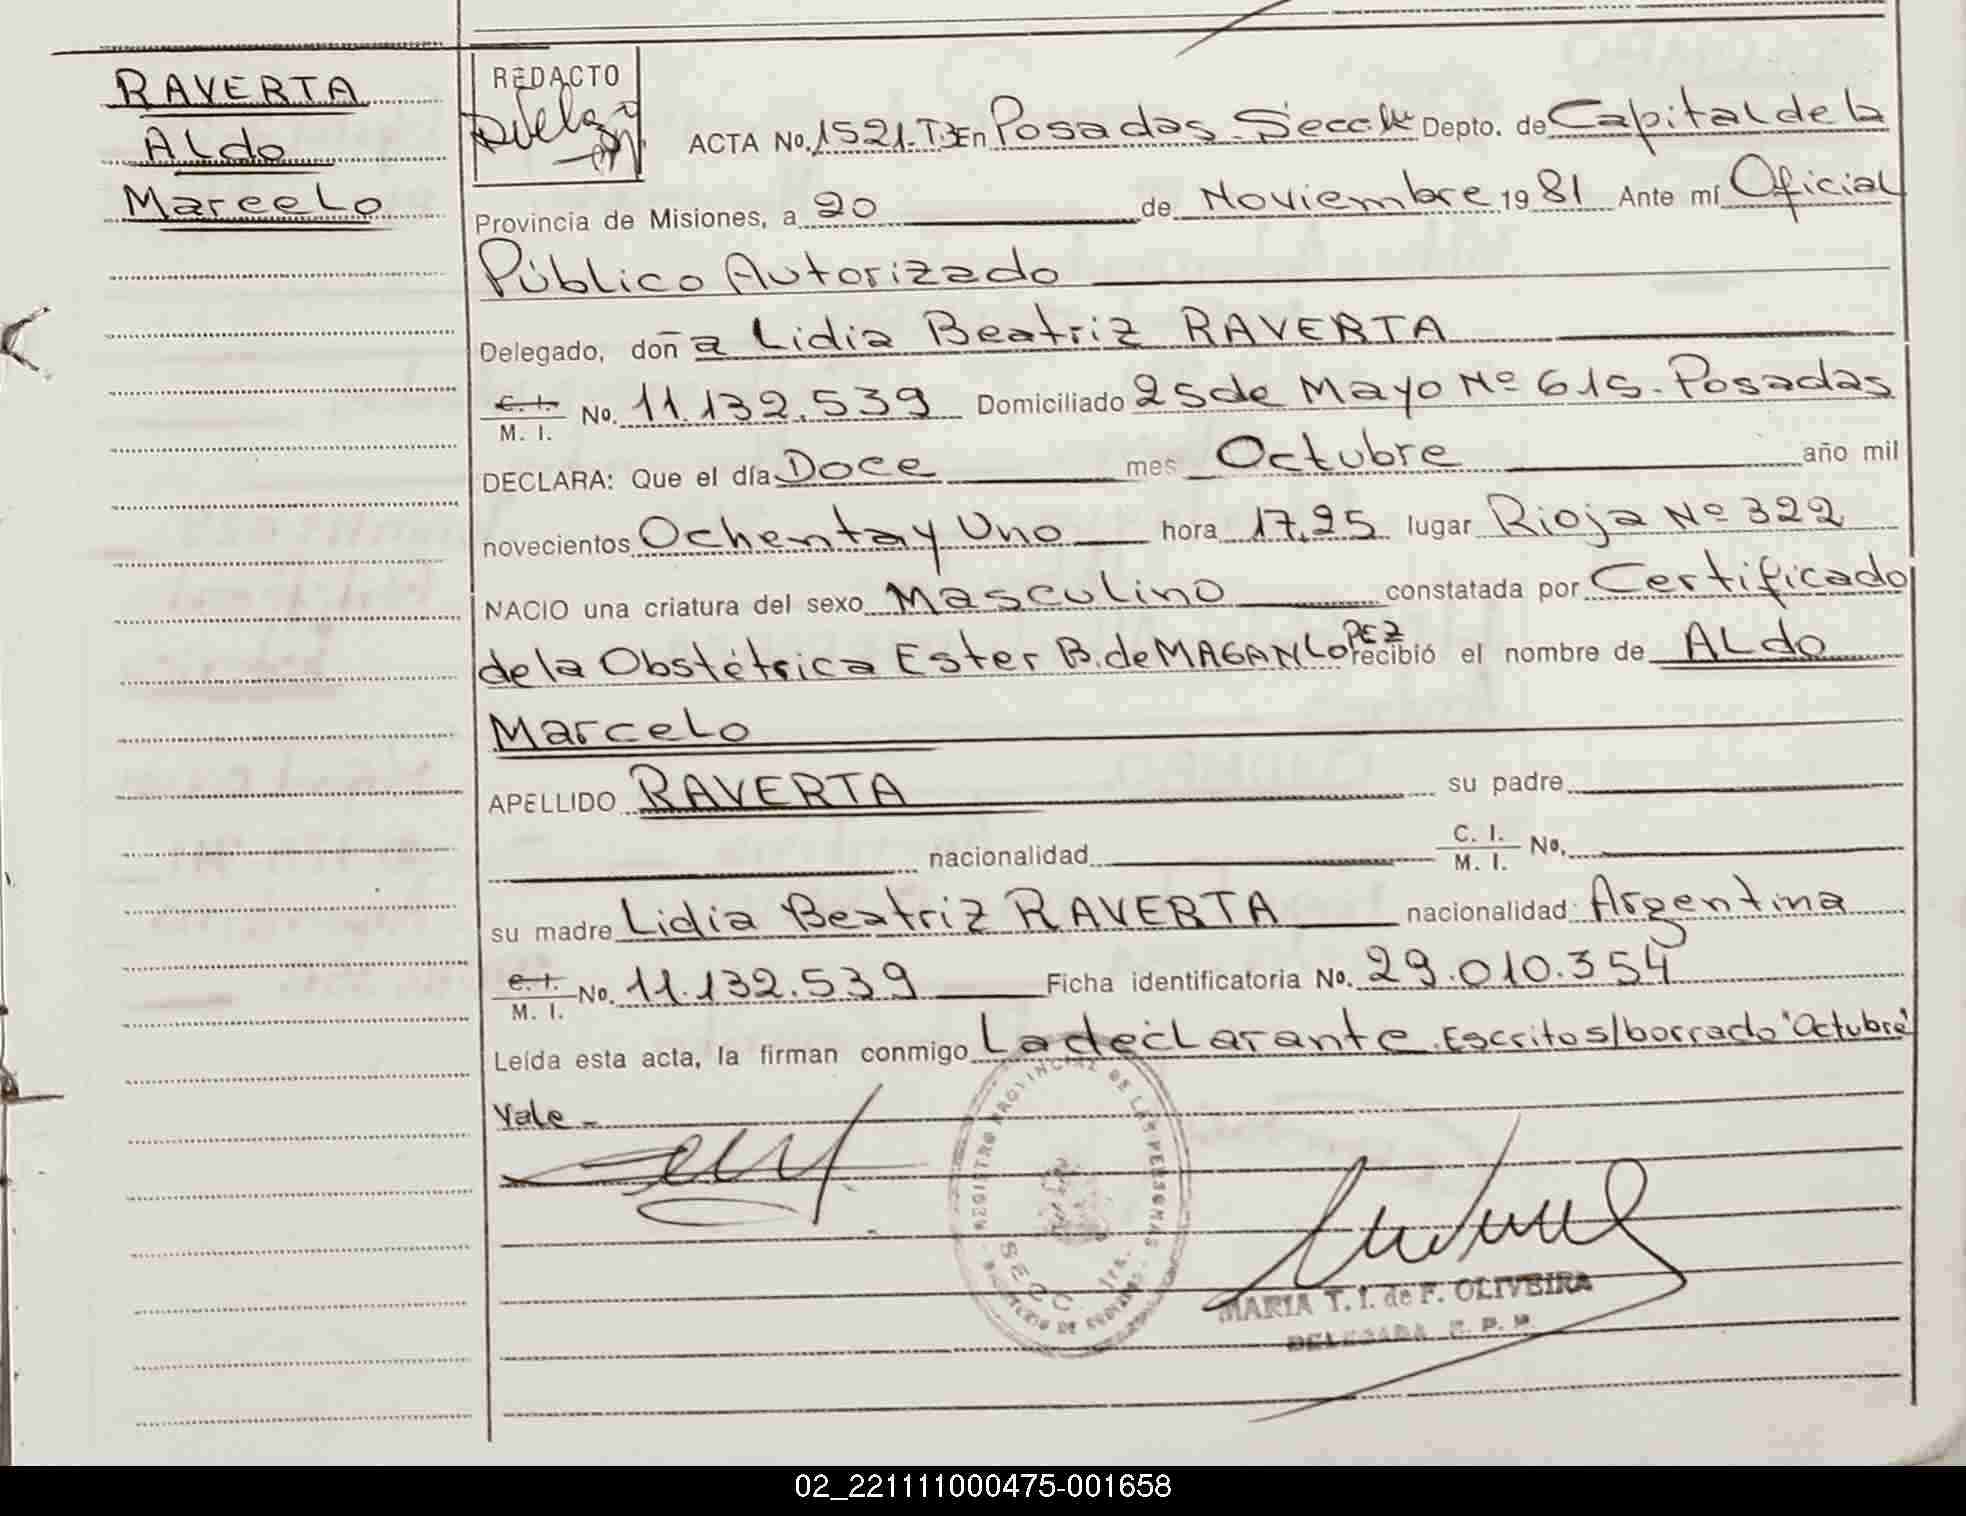 RAVERTA
Aldo
Marcelo
REDACTO
ACTA No. 1521-T3 En Posadas Secc. Depto. de Capital de la
Provincia de Misiones, a 20 de Noviembre 1981 Ante mí Oficial
Público Autorizado
Delegado, doña Lidia Beatriz RAVERTA
C. I. M. I. No. 11.132.539 Domiciliado 25 de Mayo Nº 615. Posadas
DECLARA: Que el día Doce mes Octubre año mil
novecientos Ochenta y Uno hora 17,25 lugar Rioja Nº 322
NACIO una criatura del sexo Masculino constatada por Certificado
de la Obstétrica Ester B. de MAGAN LOPEZ recibió el nombre de Aldo
Marcelo
APELLIDO RAVERTA su padre
nacionalidad C. I. M. I. No.
su madre Lidia Beatriz RAVERTA nacionalidad Argentina
C. I. M. I. No. 11.132.539 Ficha identificatoria No. 29.010.354
Leída esta acta, la firman conmigo La declarante. Escrito s/borrado "Octubre"
Vale-
REGISTRO PROVINCIAL DE LAS PERSONAS
SECC. 1ra.
MARIA T. I. de F. OLIVEIRA
DELEGADA
02_221111000475-001658